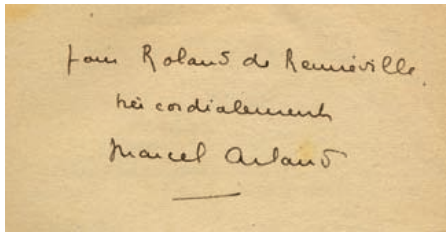 pour Roland de Renéville
très cordialement
Marcel Arland